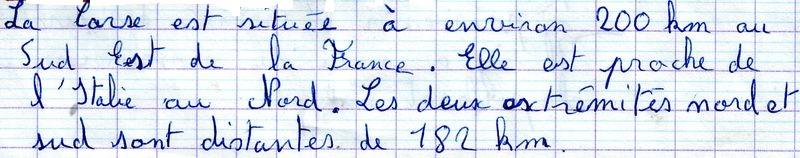 La Corse est située à environ 200 km au
Sud Est de la France. Elle est proche de
l'Italie au Nord. Les deux extrémités nord et
sud sont distantes de 182 km.